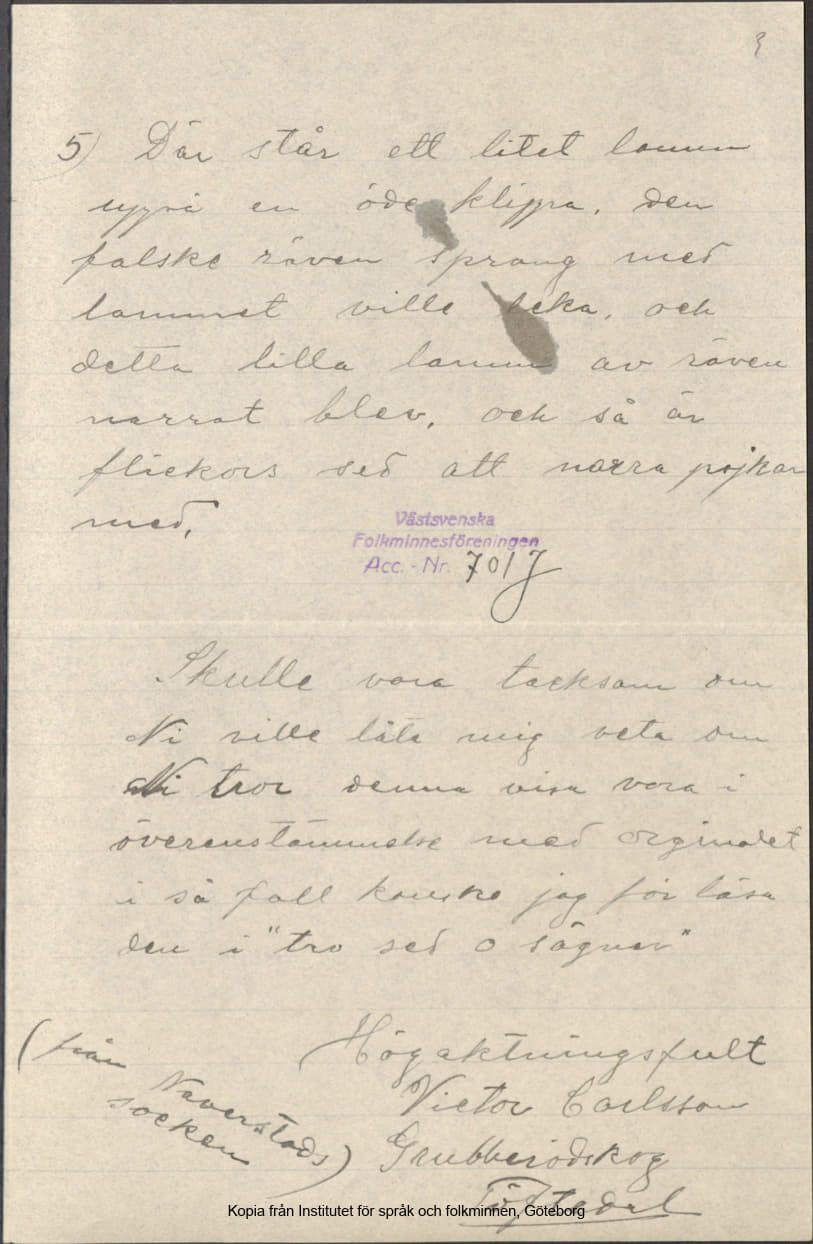 3
5) Där står ett litet lamm
uppå en öde klippa, den
falske räven sprang med
lammet ville leka, och
detta lilla lamm av räven
narrat blev, och så är
flickors sed att narra pojkar
med,
Västsvenska
Folkminnesföreningen
Acc. - Nr. 701 J
Skulle vara tacksam om
Ni ville låta mig veta om
Ni tror denna visa vara i
överenstämmelse med orginalet
i så fall kanske jag får läsa
den i "tro sed o sägner"
Högaktningsfult
Victor Carlsson
Grubberödskog
Töftedal
(från
Naverstads
socken)
Kopia från Institutet för språk och folkminnen, Göteborg